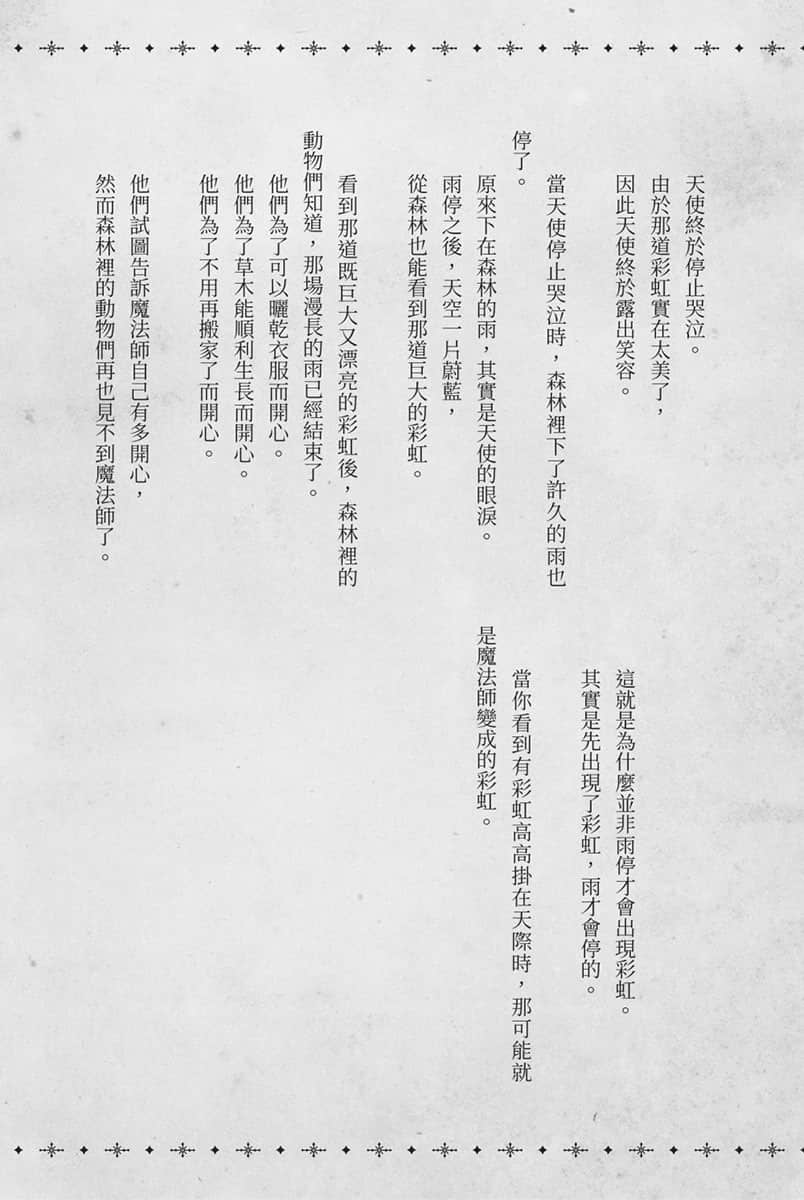 天使終於停止哭泣。
由於那道彩虹實在太美了，
因此天使終於露出笑容。
當天使停止哭泣時，森林裡下了許久的雨也
停了。
原來下在森林的雨，其實是天使的眼淚。
雨停之後，天空一片蔚藍，
從森林也能看到那道巨大的彩虹。
看到那道既巨大又漂亮的彩虹後，森林裡的
動物們知道，那場漫長的雨已經結束了。
他們為了可以曬乾衣服而開心。
他們為了草木能順利生長而開心。
他們為了不用再搬家了而開心。
他們試圖告訴魔法師自己有多開心，
然而森林裡的動物們再也見不到魔法師了。
這就是為什麼並非雨停才會出現彩虹。
其實是先出現了彩虹，雨才會停的。
當你看到有彩虹高高掛在天際時，那可能就
是魔法師變成的彩虹。